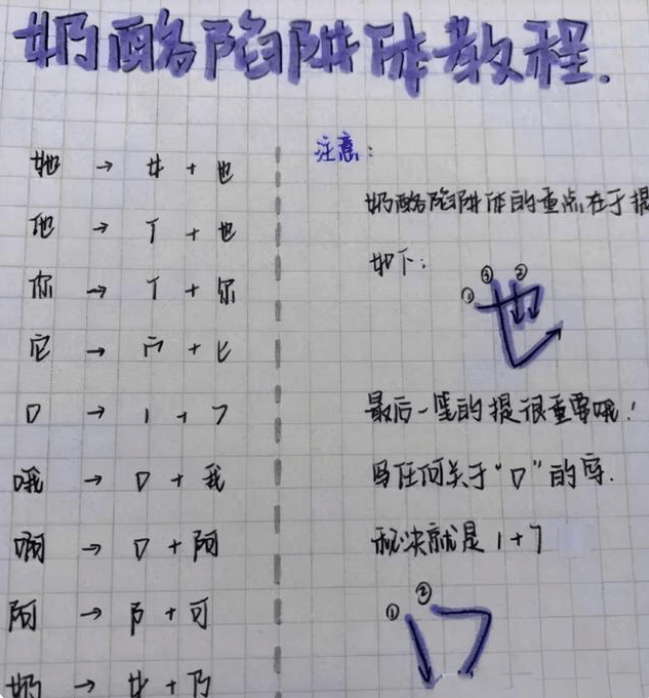 奶酪陷阱体教程.
她 → 女 + 也
他 → 亻 + 也
你 → 亻 + 尔
它 → 宀 + 匕
口 → 1 + 7
哦 → 口 + 我
啊 → 口 + 阿
阿 → 阝 + 可
奶 → 女 + 乃
注意:
奶酪陷阱体的重点在于提
如下:
① ③ ②
也
最后一笔的提很重要哦!
写任何关于“口”的字.
秘诀就是 1+7
① ②
口